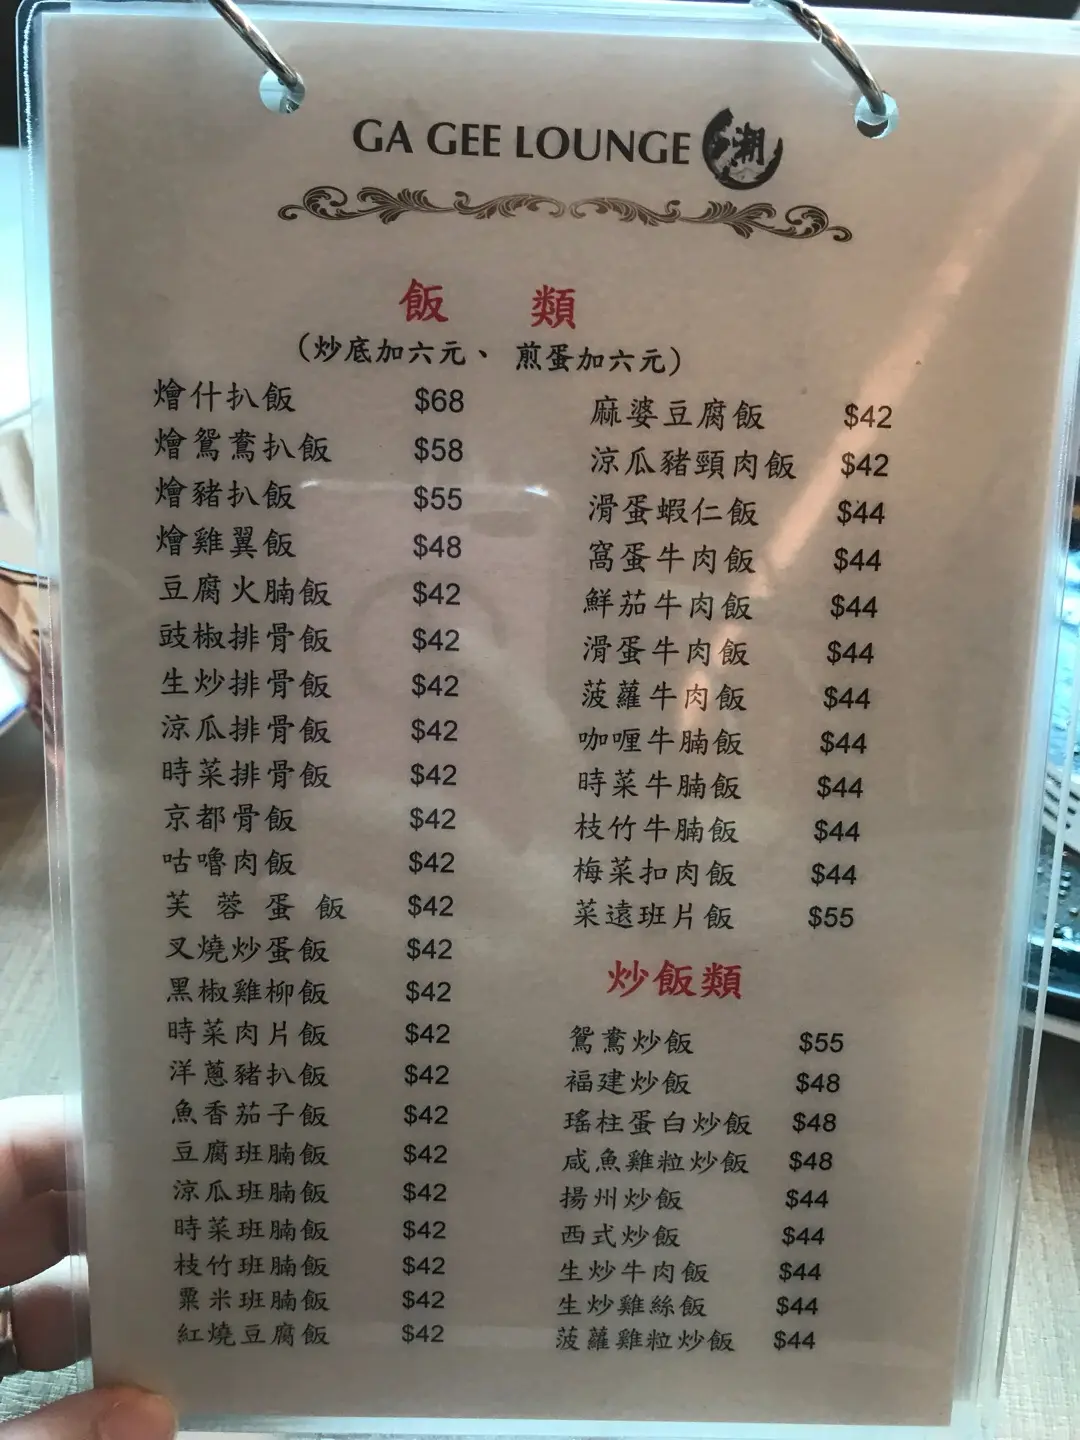 GA GEE LOUNGE 潮
飯 類
(炒底加六元、煎蛋加六元)
燴什扒飯 $68
燴鴛鴦扒飯 $58
燴豬扒飯 $55
燴雞翼飯 $48
豆腐火腩飯 $42
豉椒排骨飯 $42
生炒排骨飯 $42
涼瓜排骨飯 $42
時菜排骨飯 $42
京都骨飯 $42
咕嚕肉飯 $42
芙蓉蛋飯 $42
叉燒炒蛋飯 $42
黑椒雞柳飯 $42
時菜肉片飯 $42
洋蔥豬扒飯 $42
魚香茄子飯 $42
豆腐班腩飯 $42
涼瓜班腩飯 $42
時菜班腩飯 $42
枝竹班腩飯 $42
粟米班腩飯 $42
紅燒豆腐飯 $42
麻婆豆腐飯 $42
涼瓜豬頸肉飯 $42
滑蛋蝦仁飯 $44
窩蛋牛肉飯 $44
鮮茄牛肉飯 $44
滑蛋牛肉飯 $44
菠蘿牛肉飯 $44
咖喱牛腩飯 $44
時菜牛腩飯 $44
枝竹牛腩飯 $44
梅菜扣肉飯 $44
菜遠班片飯 $55
炒飯類
鴛鴦炒飯 $55
福建炒飯 $48
瑤柱蛋白炒飯 $48
咸魚雞粒炒飯 $48
揚州炒飯 $44
西式炒飯 $44
生炒牛肉飯 $44
生炒雞絲飯 $44
菠蘿雞粒炒飯 $44